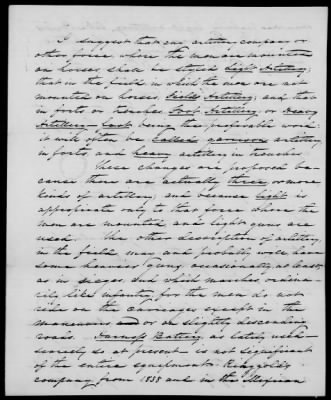 I suggest that any artillery company or
other force where the men are mounted
on horses shall be styled Light Artillery;
that in the field in which the men are not
mounted on horses, Field Artillery; and that
in forts or trenches Fort Artillery or Heavy
Artillery - Last being the preferable word.
it will often be called garrison artillery
in forts, and heavy artillery in trenches.
These changes are proposed be-
cause there are actually three or more
kinds of artillery, and because light is
appropriate only to that force where the
men are mounted and light guns are
used. The other description of artillery,
in the field may and probably will have
some heavier guns, occasionally, at least,
as in sieges. And which marches, ordina-
rily like infantry, for the men do not
ride on the carriages except in the
maneuvres or on slightly descending
roads. Harness Battery, as lately used
so at present is not significant
of the entire equipment. Ringgold's
company from 1838 and in the Mexican